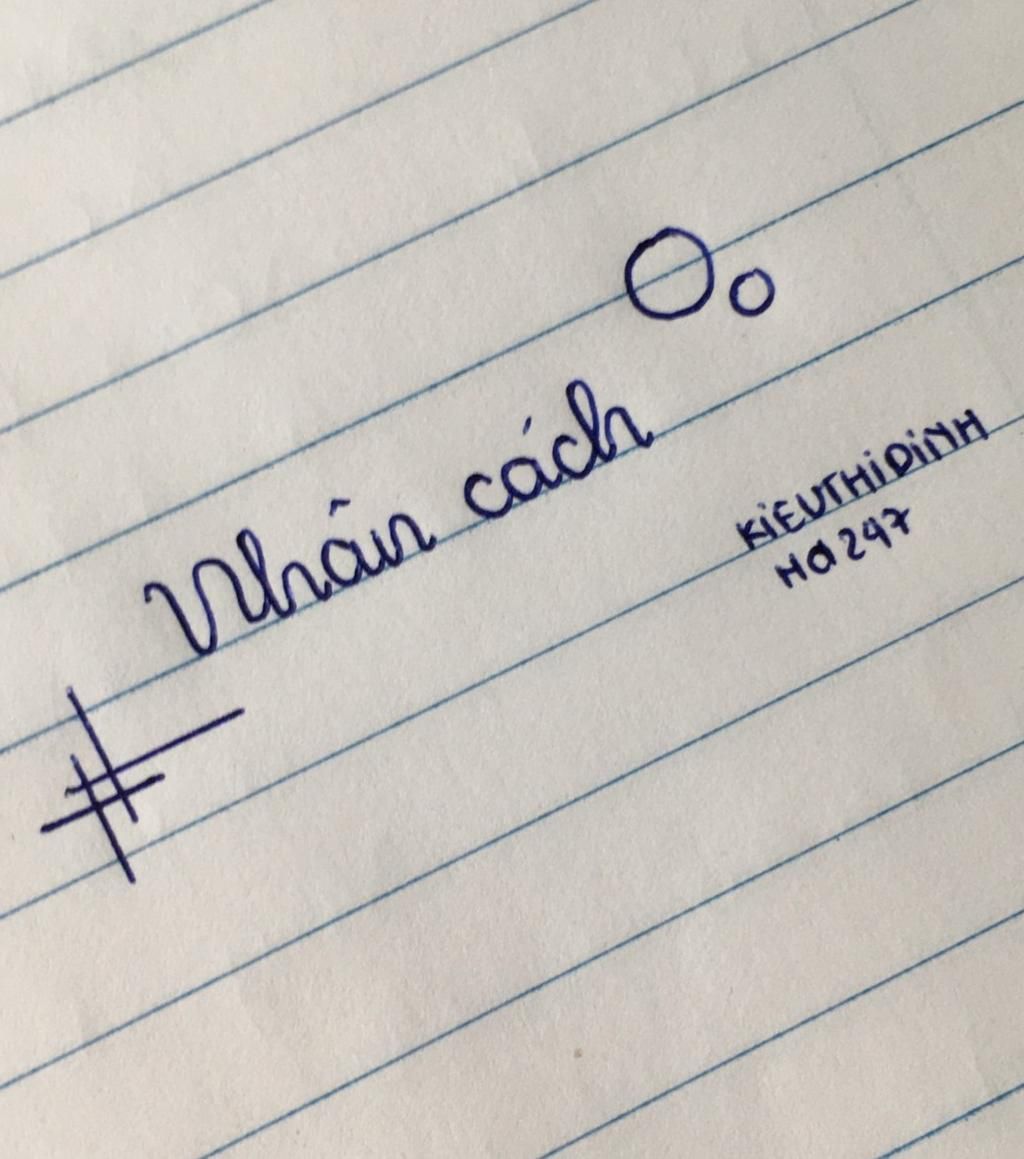 Nhân cách
KiEUTHiDiNH
Ha247
#